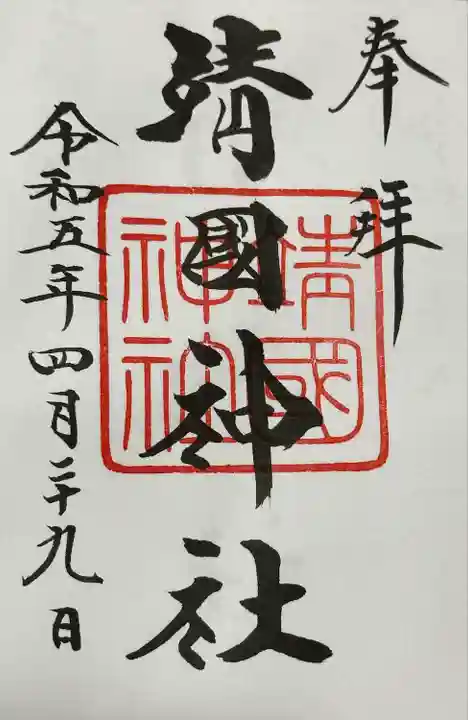 奉拜
靖國神社
靖國
神社
令和五年四月二十九日